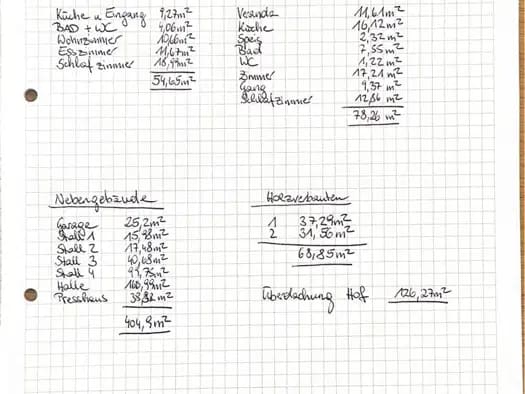 Küche u Eingang 9,27m²
BAD + WC 4,06m²
Wohnzimmer 10,66m²
Esszimmer 11,67m²
Schlafzimmer 18,99m²
54,65m²
Veranda 11,61m²
Küche 16,12m²
Speis 2,32m²
Bad 7,55m²
WC 1,22m²
Zimmer 17,21m²
Gang 9,37m²
Schlafzimmer 12,86m²
78,26m²
Nebengebäude
Garage 25,2m²
Stall 1 15,98m²
Stall 2 17,48m²
Stall 3 40,68m²
Stall 4 99,75m²
Halle 166,99m²
Presshaus 38,82m²
404,9m²
Holzverbauten
1 37,29m²
2 31,56m²
68,85m²
Überdachung Hof 126,27m²